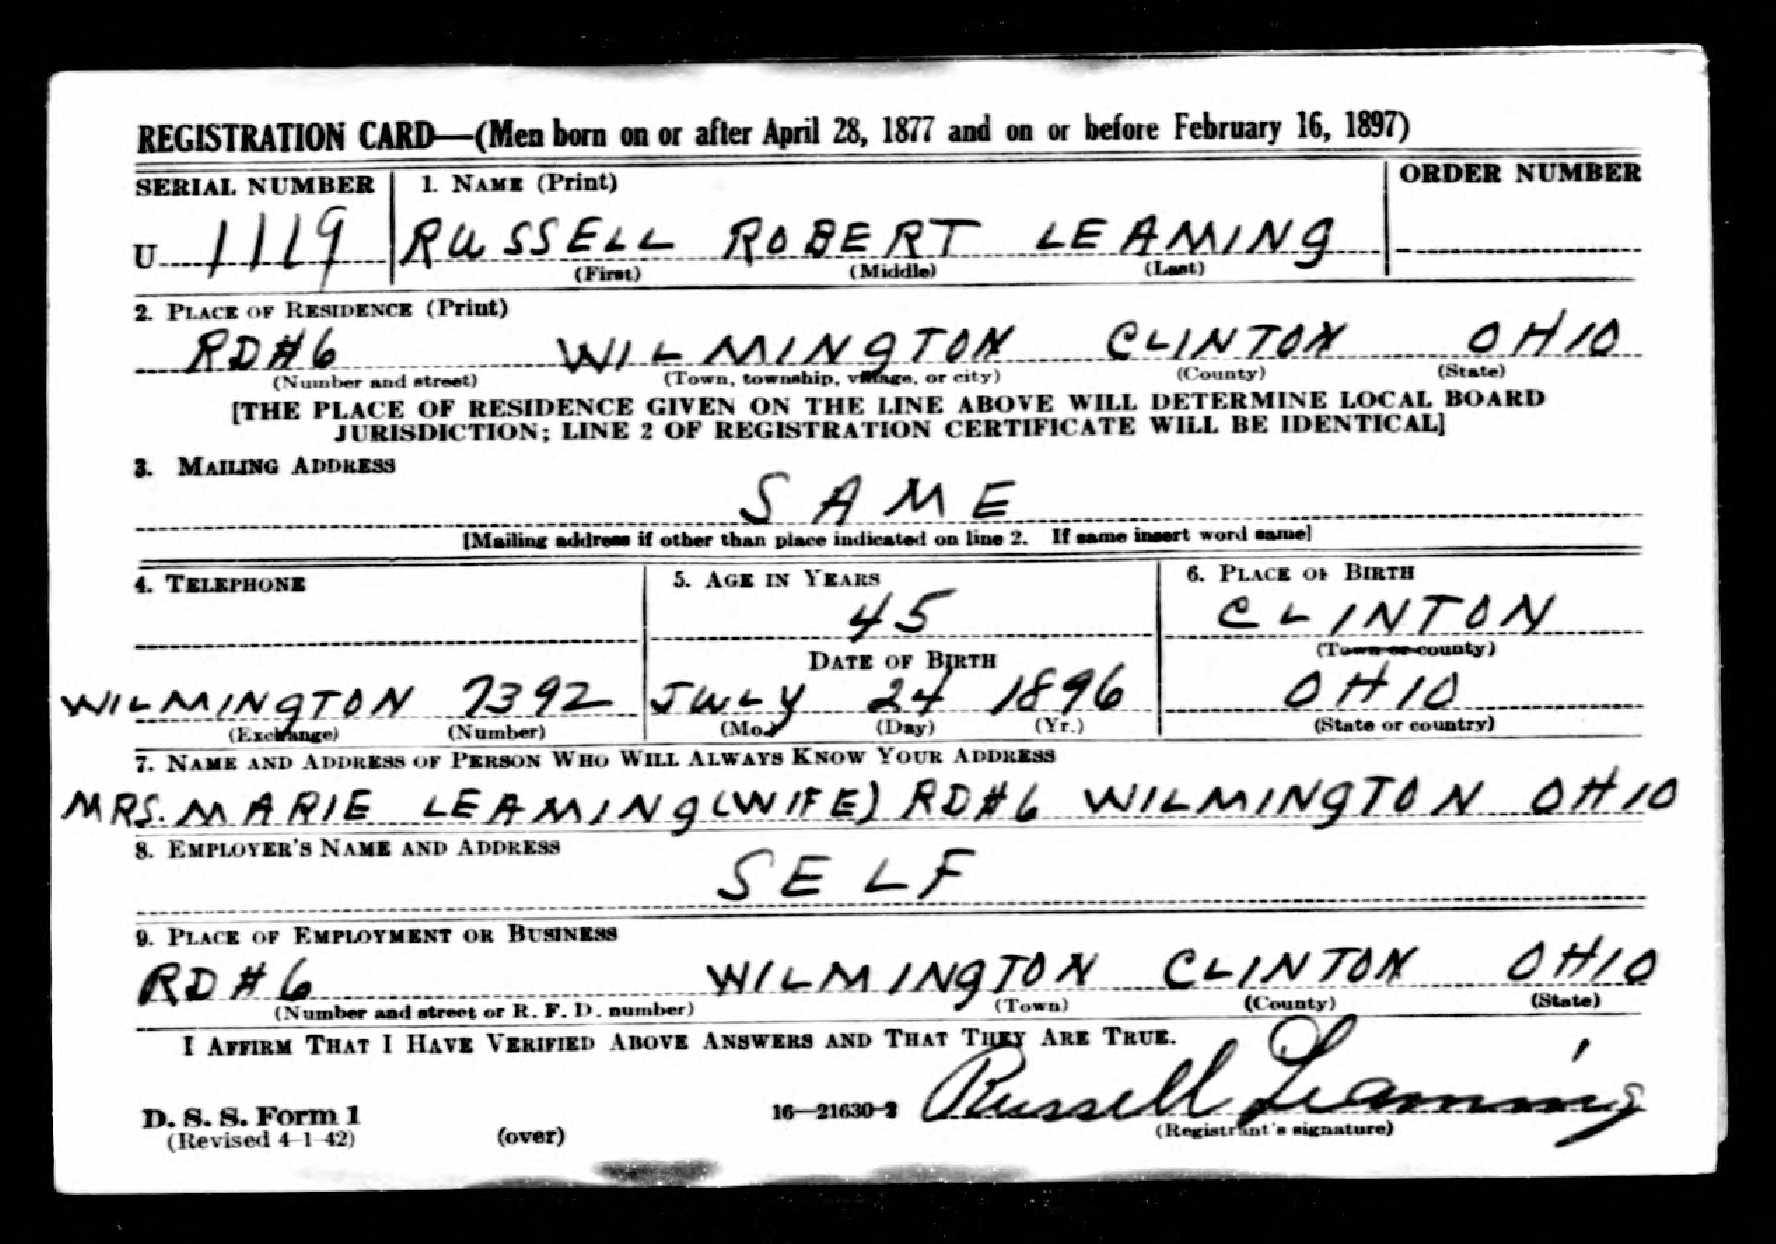 REGISTRATION CARD—(Men born on or after April 28, 1877 and on or before February 16, 1897)
SERIAL NUMBER 1. NAME (Print) ORDER NUMBER
U 1119 RUSSELL ROBERT LEAMING
(First) (Middle) (Last)
2. PLACE OF RESIDENCE (Print)
RD#6 WILMINGTON CLINTON OHIO
(Number and street) (Town, township, village, or city) (County) (State)
[THE PLACE OF RESIDENCE GIVEN ON THE LINE ABOVE WILL DETERMINE LOCAL BOARD
JURISDICTION; LINE 2 OF REGISTRATION CERTIFICATE WILL BE IDENTICAL]
3. MAILING ADDRESS
SAME
[Mailing address if other than place indicated on line 2. If same insert word same]
4. TELEPHONE 5. AGE IN YEARS 6. PLACE OF BIRTH
45 CLINTON
DATE OF BIRTH (Town or county)
WILMINGTON 7392 JULY 24 1896 OHIO
(Exchange) (Number) (Mo.) (Day) (Yr.) (State or country)
7. NAME AND ADDRESS OF PERSON WHO WILL ALWAYS KNOW YOUR ADDRESS
MRS. MARIE LEAMING (WIFE) RD#6 WILMINGTON OHIO
8. EMPLOYER'S NAME AND ADDRESS
SELF
9. PLACE OF EMPLOYMENT OR BUSINESS
RD#6 WILMINGTON CLINTON OHIO
(Number and street or R. F. D. number) (Town) (County) (State)
I AFFIRM THAT I HAVE VERIFIED ABOVE ANSWERS AND THAT THEY ARE TRUE.
Russell Leaming
D. S. S. Form 1 16—21630-2
(Revised 4-1-42) (over) (Registrant's signature)